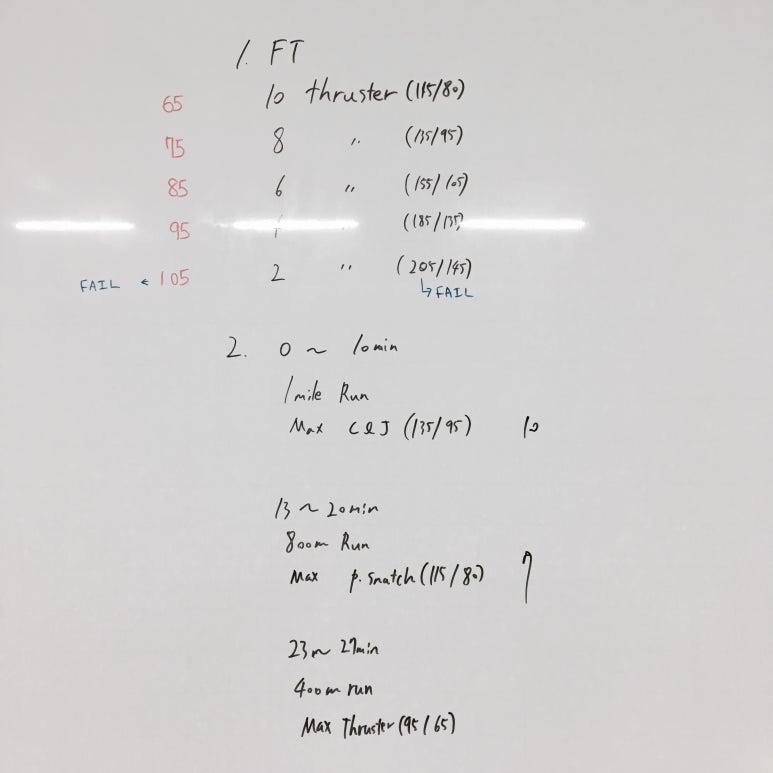 1. FT
65 10 thruster (115/80)
75 8 〃 (135/95)
85 6 〃 (155/105)
95 (185/135)
FAIL ← 105 2 〃 (205/145)
↳ FAIL
2. 0 ~ 10min
1mile Run
Max C&J (135/95) 10
13 ~ 20min
800m Run
Max p. snatch (115/80) 7
23 ~ 27min
400m run
Max Thruster (95/65)